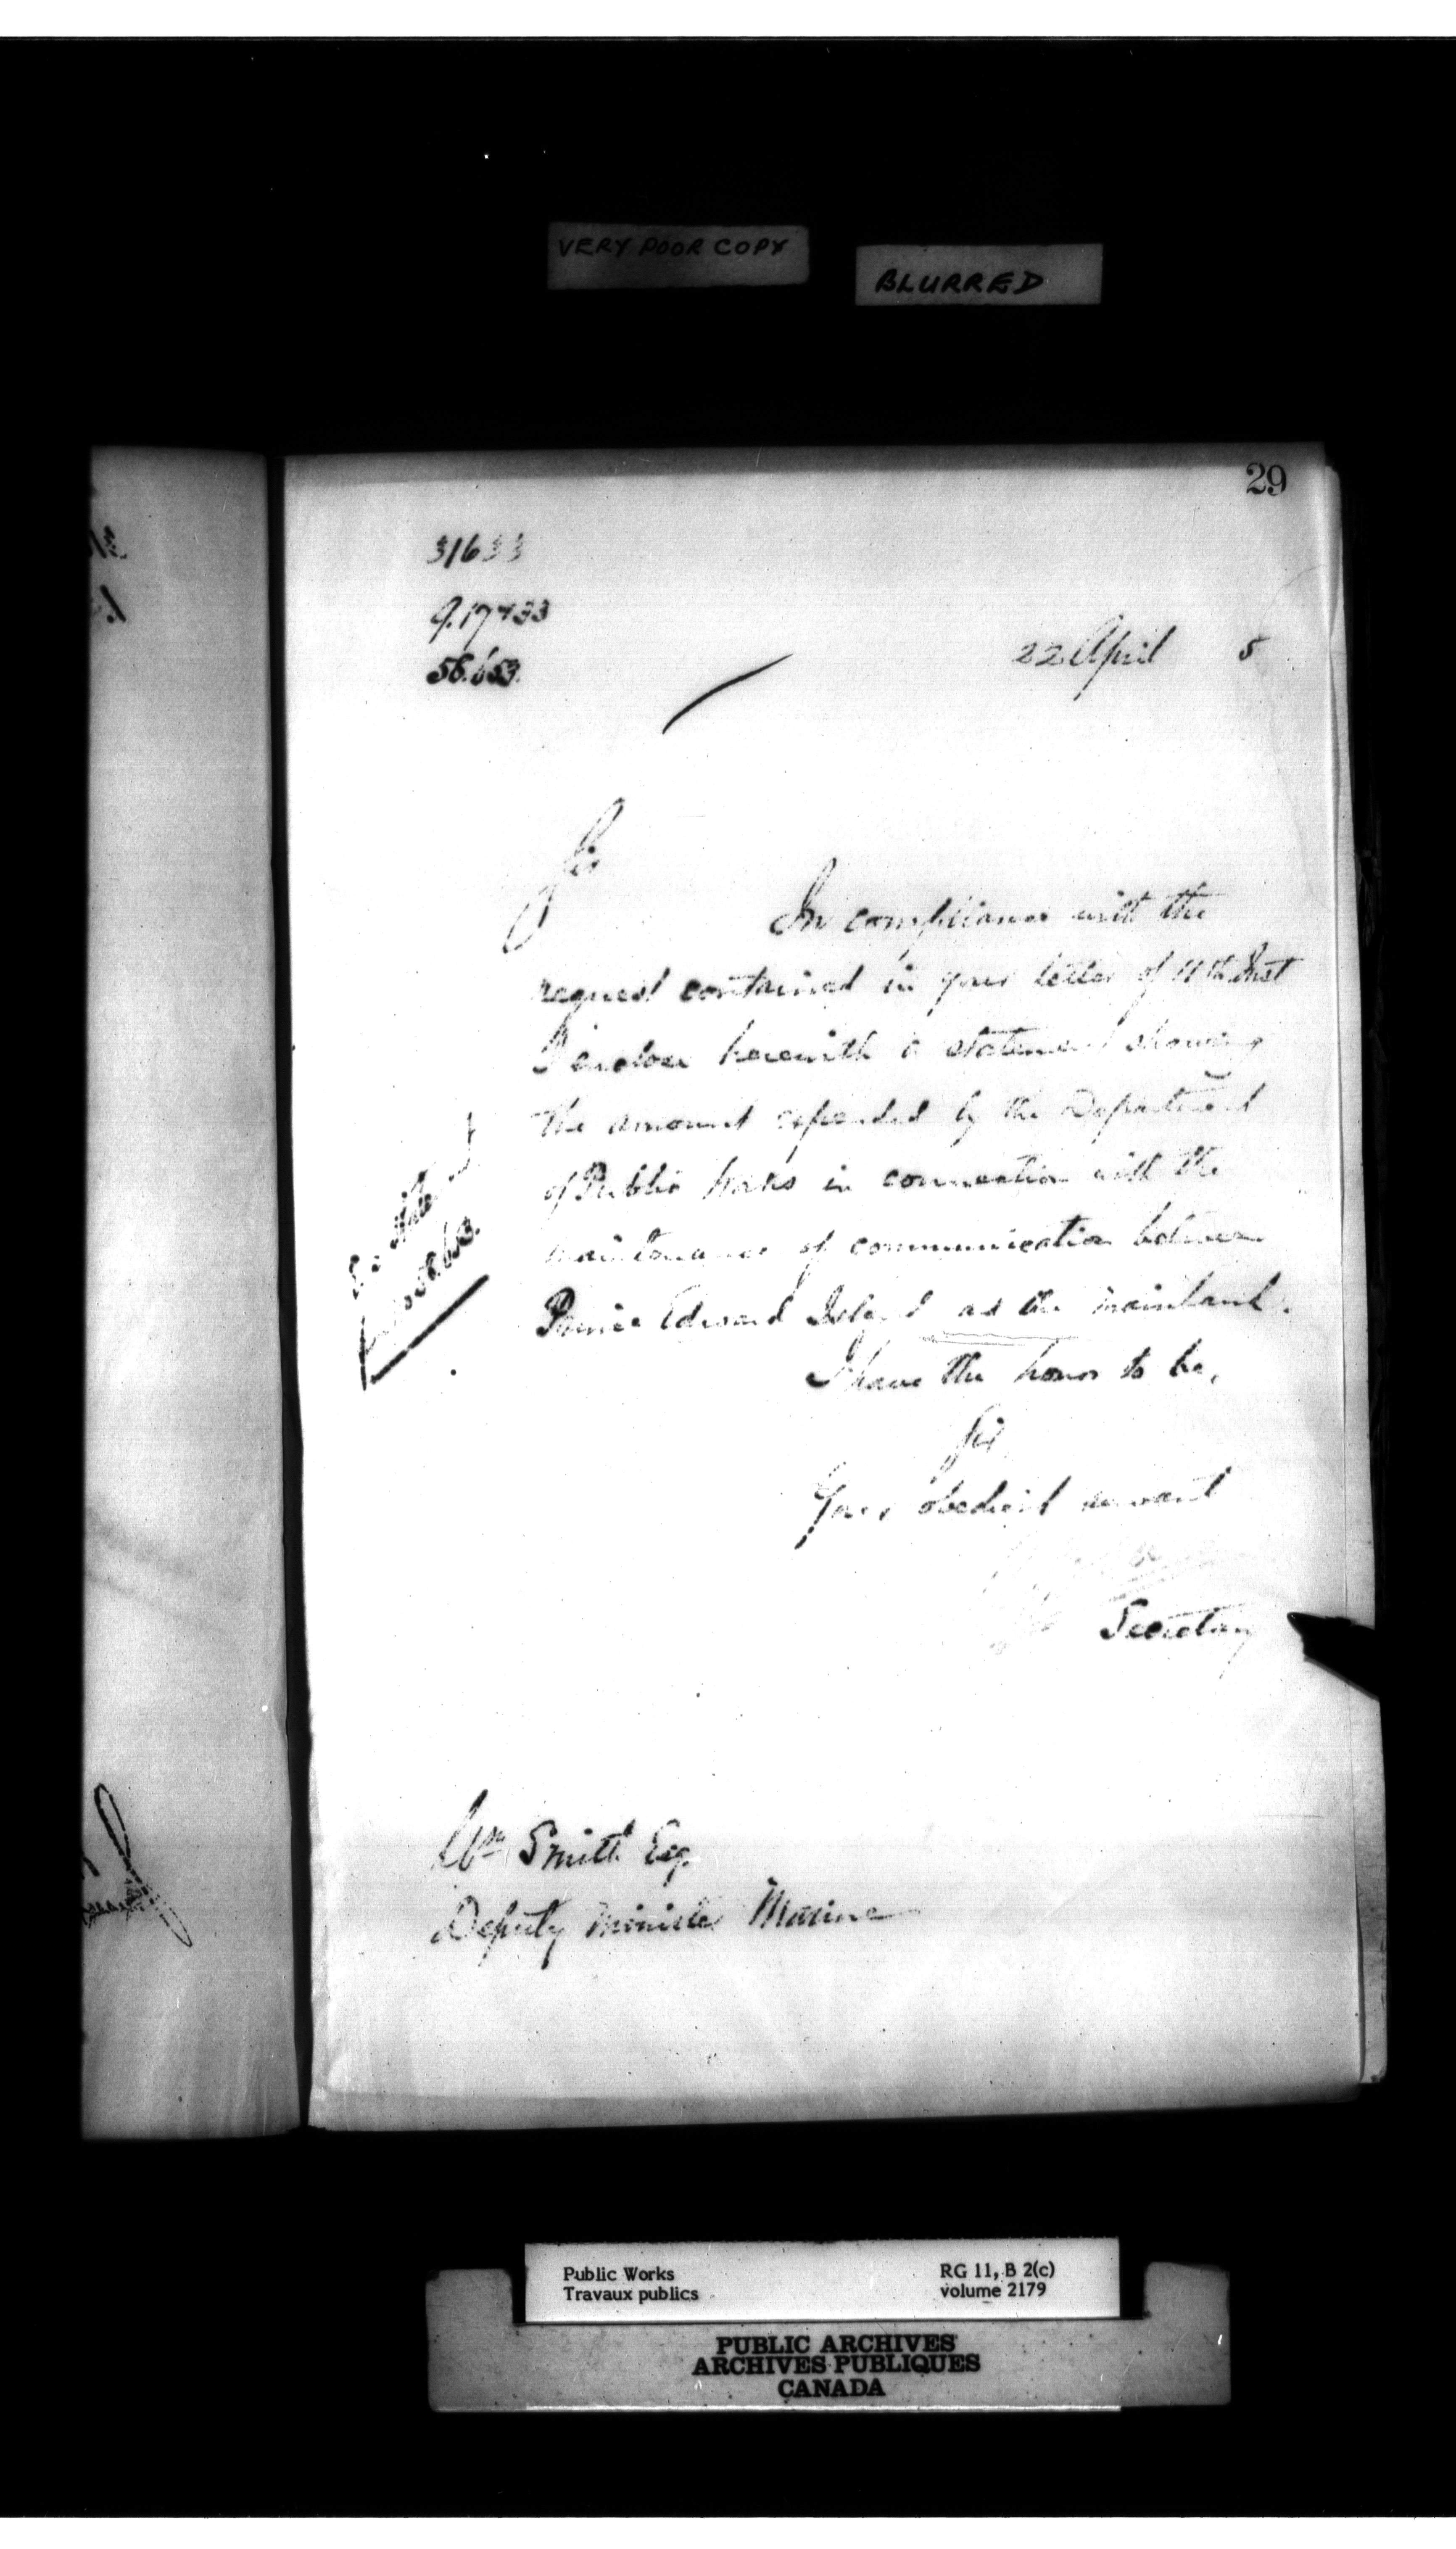 VERY POOR COPY
BLURRED
29
31633
56.653.
22 April 5
Sir
In compliance with the
request contained in your letter of 11th Inst
I enclose herewith a statement showing
the amount expended by the Department
of Public Works in connection with the
maintenance of communication between
Prince Edward Island as the mainland.
I have the honor to be,
Sir
Your obedient servant
Secretary
Wm Smith Esq.
Deputy Minister Marine
Public Works
Travaux publics
RG 11, B 2(c)
volume 2179
PUBLIC ARCHIVES
ARCHIVES PUBLIQUES
CANADA